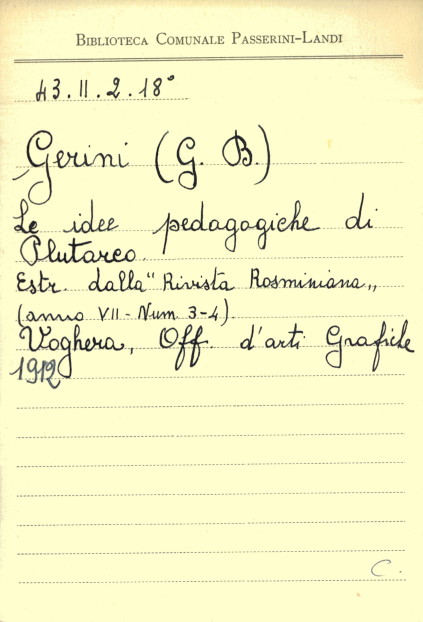 BIBLIOTECA COMUNALE PASSERINI-LANDI
43.II.2.18°
Gerini (G. B.)
Le idee pedagogiche di
Plutarco.
Estr. dalla "Rivista Rosminiana„
(anno VII - Num 3-4).
Voghera, Off. d'arti Grafiche
1912
C.